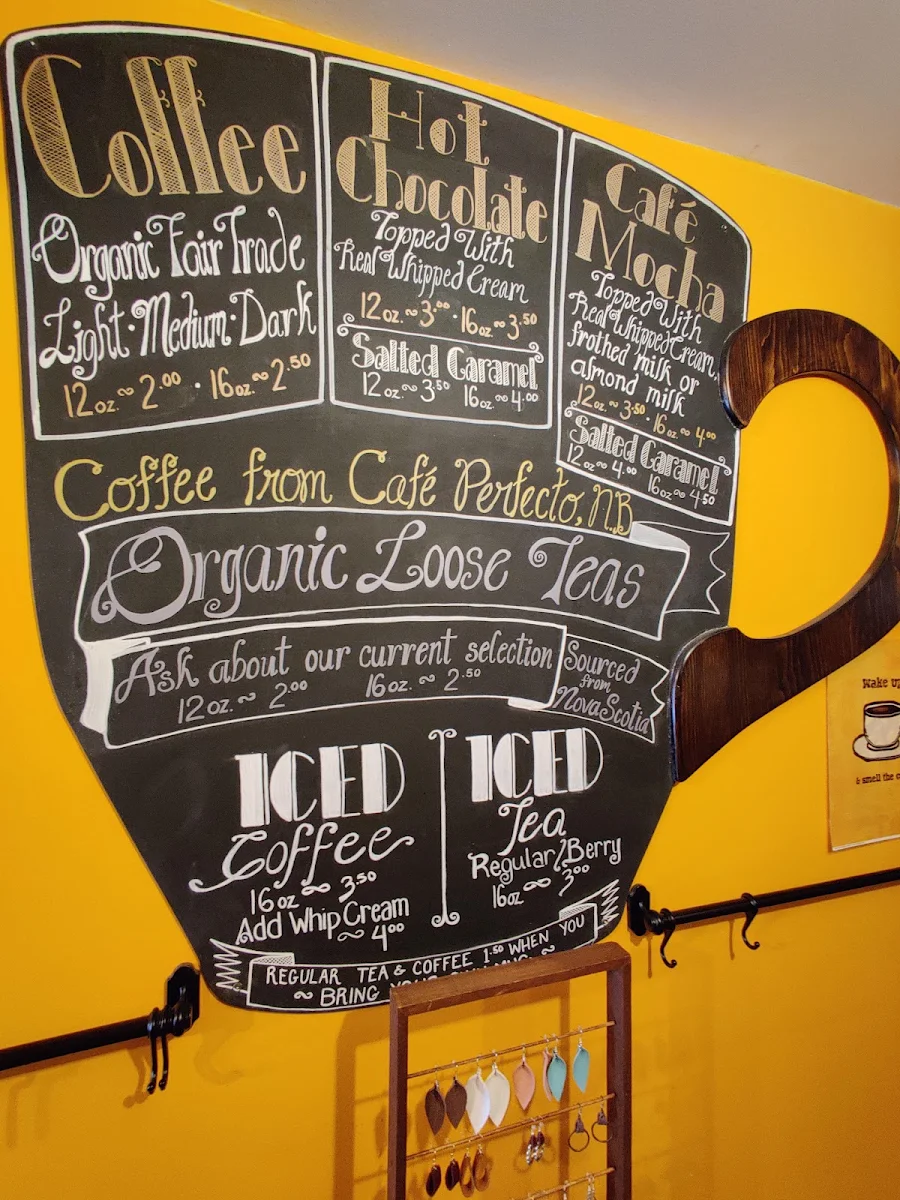 Coffee
Organic Fair Trade
Light · Medium · Dark
12 oz. ~ 2.00 · 16 oz. ~ 2.50
Hot
Chocolate
Topped With
Real Whipped Cream
12 oz. ~ 3.00 · 16 oz. ~ 3.50
Salted Caramel
12 oz. ~ 3.50 16 oz. ~ 4.00
Café
Mocha
Topped With
Real Whipped Cream,
frothed milk or
almond milk
12 oz. ~ 3.50 · 16 oz. ~ 4.00
Salted Caramel
12 oz. ~ 4.00 16 oz. ~ 4.50
Coffee from Café Perfecto, NB
Organic Loose Teas
Ask about our current selection
12 oz. ~ 2.00 16 oz. ~ 2.50
Sourced
from
Nova Scotia
ICED
Coffee
16 oz ~ 3.50
Add Whip Cream
~ 4.00
ICED
Tea
Regular/Berry
16oz ~ 3.00
REGULAR TEA & COFFEE 1.50 WHEN YOU
~ BRING YOUR MUG ~
Wake up
& smell the